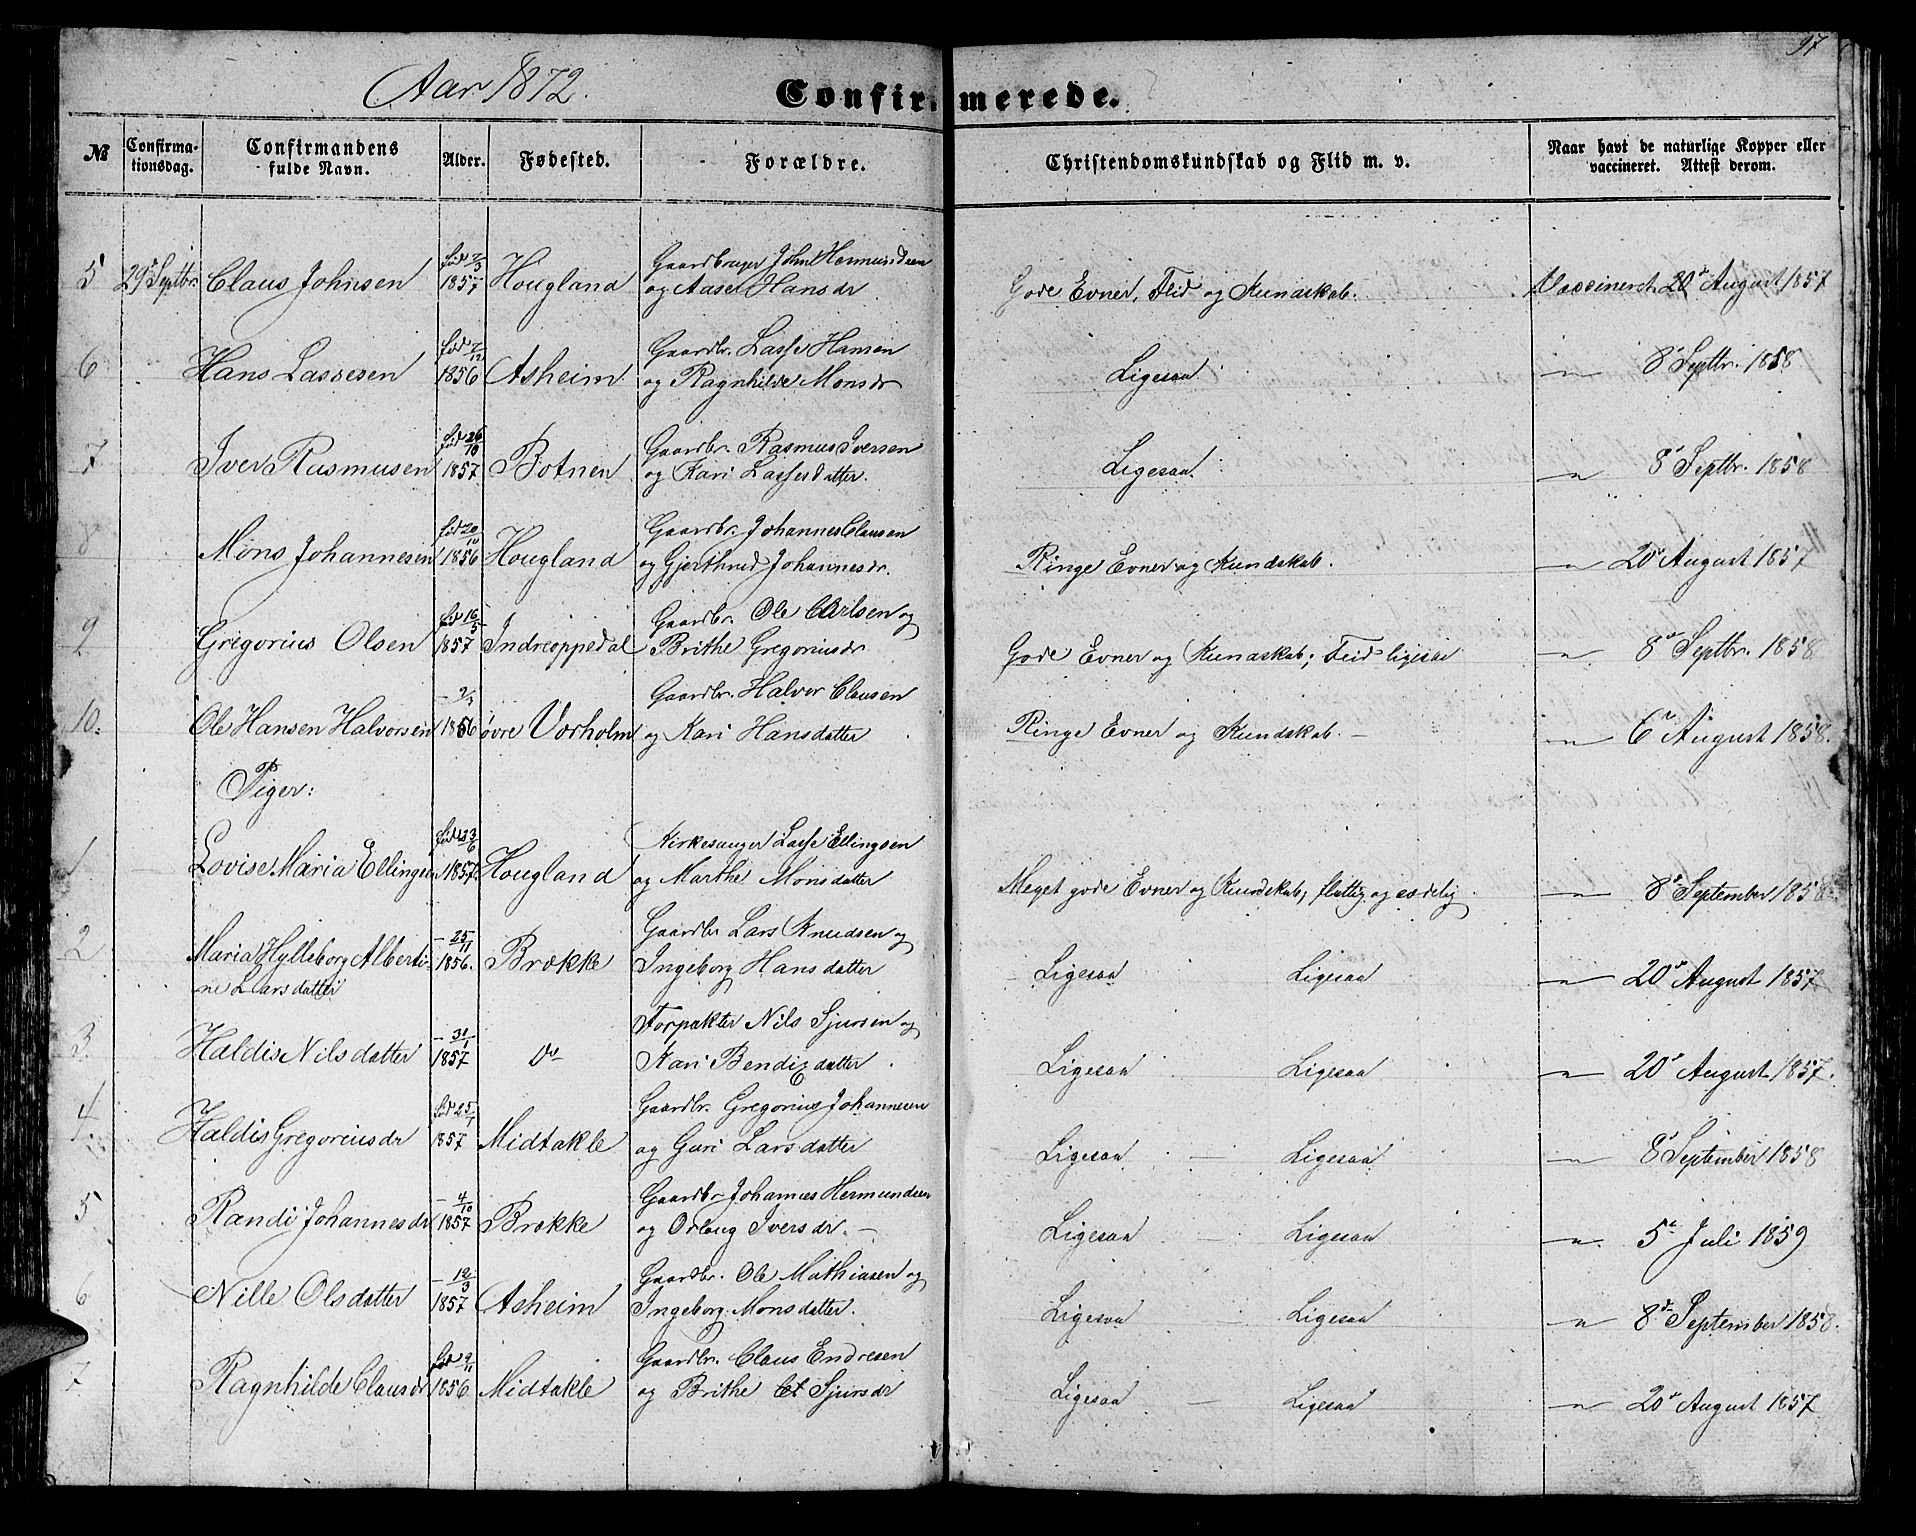 97
Aar 1872.
Confirmerede.
№
Confirmationsdag.
Confirmandens fulde Navn.
Alder.
Fødested.
Forældre.
Christendomskundskab og Flid m. v.
Naar havt de naturlige Kopper eller vaccineret. Attest derom.
5 29 Septbr. Claus Johnsen født 7/3 1857 Hougland Gaardbruger John Hermundsen og Aase Hansdr Gode Evner, Flid og Kundskab. Vaccineret 20de August 1857
6 Hans Lassesen født 7/12 1856 Asheim Gaardbr. Lasse Hansen og Ragnhilde Monsdr Ligesaa — " — 8de Septbr. 1858
7 Iver Rasmusen født 26/10 1857 Botnen Gaardbr. Rasmus Iversen og Kari Lassesdatter. Ligesaa — " — 8de Septbr. 1858
8 Mons Johannesen født 20/10 1856 Hougland Gaardbr. Johannes Clausen og Gjerthrud Johannesdr. Ringe Evner og Kundskab. — " — 20de August 1857
9 Gregorius Olsen født 16/5 1857 Indreoppedal Gaardbr. Ole Carlsen og Brithe Gregoriusdr Gode Evner og Kundskab; Flid ligesaa — " — 8de Septbr. 1858
10. Ole Hansen Halvorsen — 9/3 1856 øvre Værholm Gaardbr. Halvor Clausen og Kari Hansdatter Ringe Evner og Kundskab. — — " — 6te August 1858.
Piger:
1 Lovise Maria Ellingsen født 23/6 1857. Hougland Kirkesanger Lasse Ellingsen og Marthe Monsdatter Meget gode Evner og Kundskab, flittig og sædelig — " — 8de September 1858
2 Maria Hylleborg Albertine Larsdatter — 25/11 1856. Brække Gaardbr Lars Knudsen og Ingeborg Hansdatter Ligesaa Ligesaa — " — 20de August 1857
3. Haldis Nilsdatter — 31/1 1857 Do Forpakter Nils Sjursen og Kari Bendixdatter. Ligesaa Ligesaa — " — 20de August 1857.
4 Haldis Gregoreiusdr født 25/1 1857 Midtakle Gaardbr. Gregorius Johannesen og Guri Larsdatter Ligesaa — Ligesaa — " — 8de September 1858
5 Randi Johannesdr — 4/10 1857 Brække Gaardbr Johannes Hermundsen og Orlaug Iversdr. — Ligesaa — Ligesaa — " — 5te Juli 1859
6 Nille Olsdatter — 12/3 1857 Asheim Gaardbr. Ole Mathiasen og Ingeborg Monsdatter. Ligesaa — Ligesaa — " — 8de September 1858.
7 Ragnhilde Clausdr født 9/11 1856 Midtakle Gaardbr. Claus Endresen og Brithe Sjursdr Ligesaa — Ligesaa — " — 20de August 1857